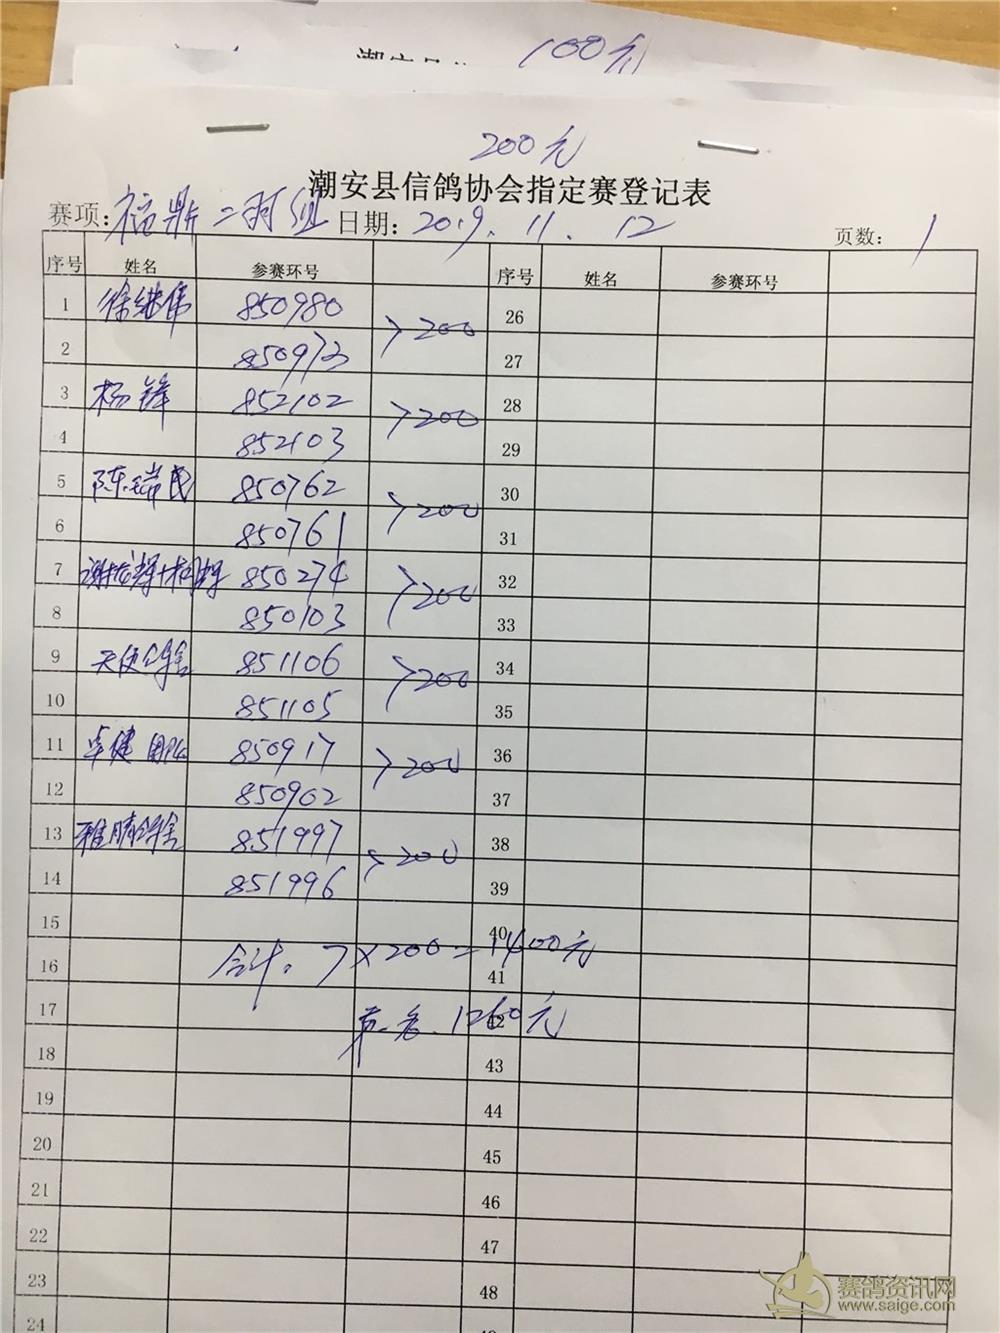 100元
200元
潮安县信鸽协会指定赛登记表
赛项: 福鼎二羽组 日期: 2019.11.12 页数: 1
序号 姓名 参赛环号 序号 姓名 参赛环号
1 徐继伟 850980 >200 26
2 850973 27
3 杨锋 852102 >200 28
4 852103 29
5 陈瑞民 850762 >200 30
6 850761 31
7 850274 >200 32
8 850103 33
9 天使鸽舍 851106 >200 34
10 851105 35
11 卓健团队 850917 >200 36
12 850902 37
13 雅晴鸽舍 851997 >200 38
14 851996 39
15 40
16 合计: 7×200=1400元 41
17 第一名. 1260元 42
18 43
19 44
20 45
21 46
22 47
23 48
24
赛鸽资讯网
www.saige.com